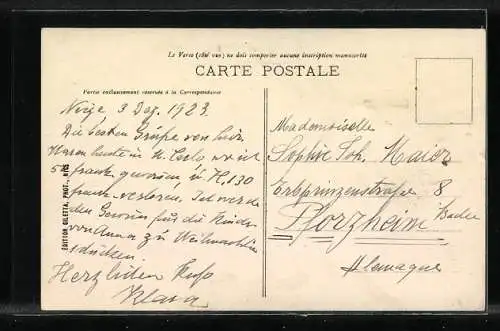 Le Verso (côté vue) ne doit comporter aucune inscription manuscrite
CARTE POSTALE
Partie exclusivement réservée à la Correspondance
Nizza 3 Dez. 1923.
Die besten Grüße von hier.
Waren heute in M. Carlo, wo ich
5 frank gewonnen u H, 130
frank verloren. Ich werde
den Gewinn für die Kinder
von Anna zu Weihnachten
schicken.
Herzlichen Kuss
Klara
EDITION GILETTA, PHOT., NICE
Mademoiselle
Sophie Joh. Maier
Erbprinzenstraße 8
Pforzheim Baden
Allemagne